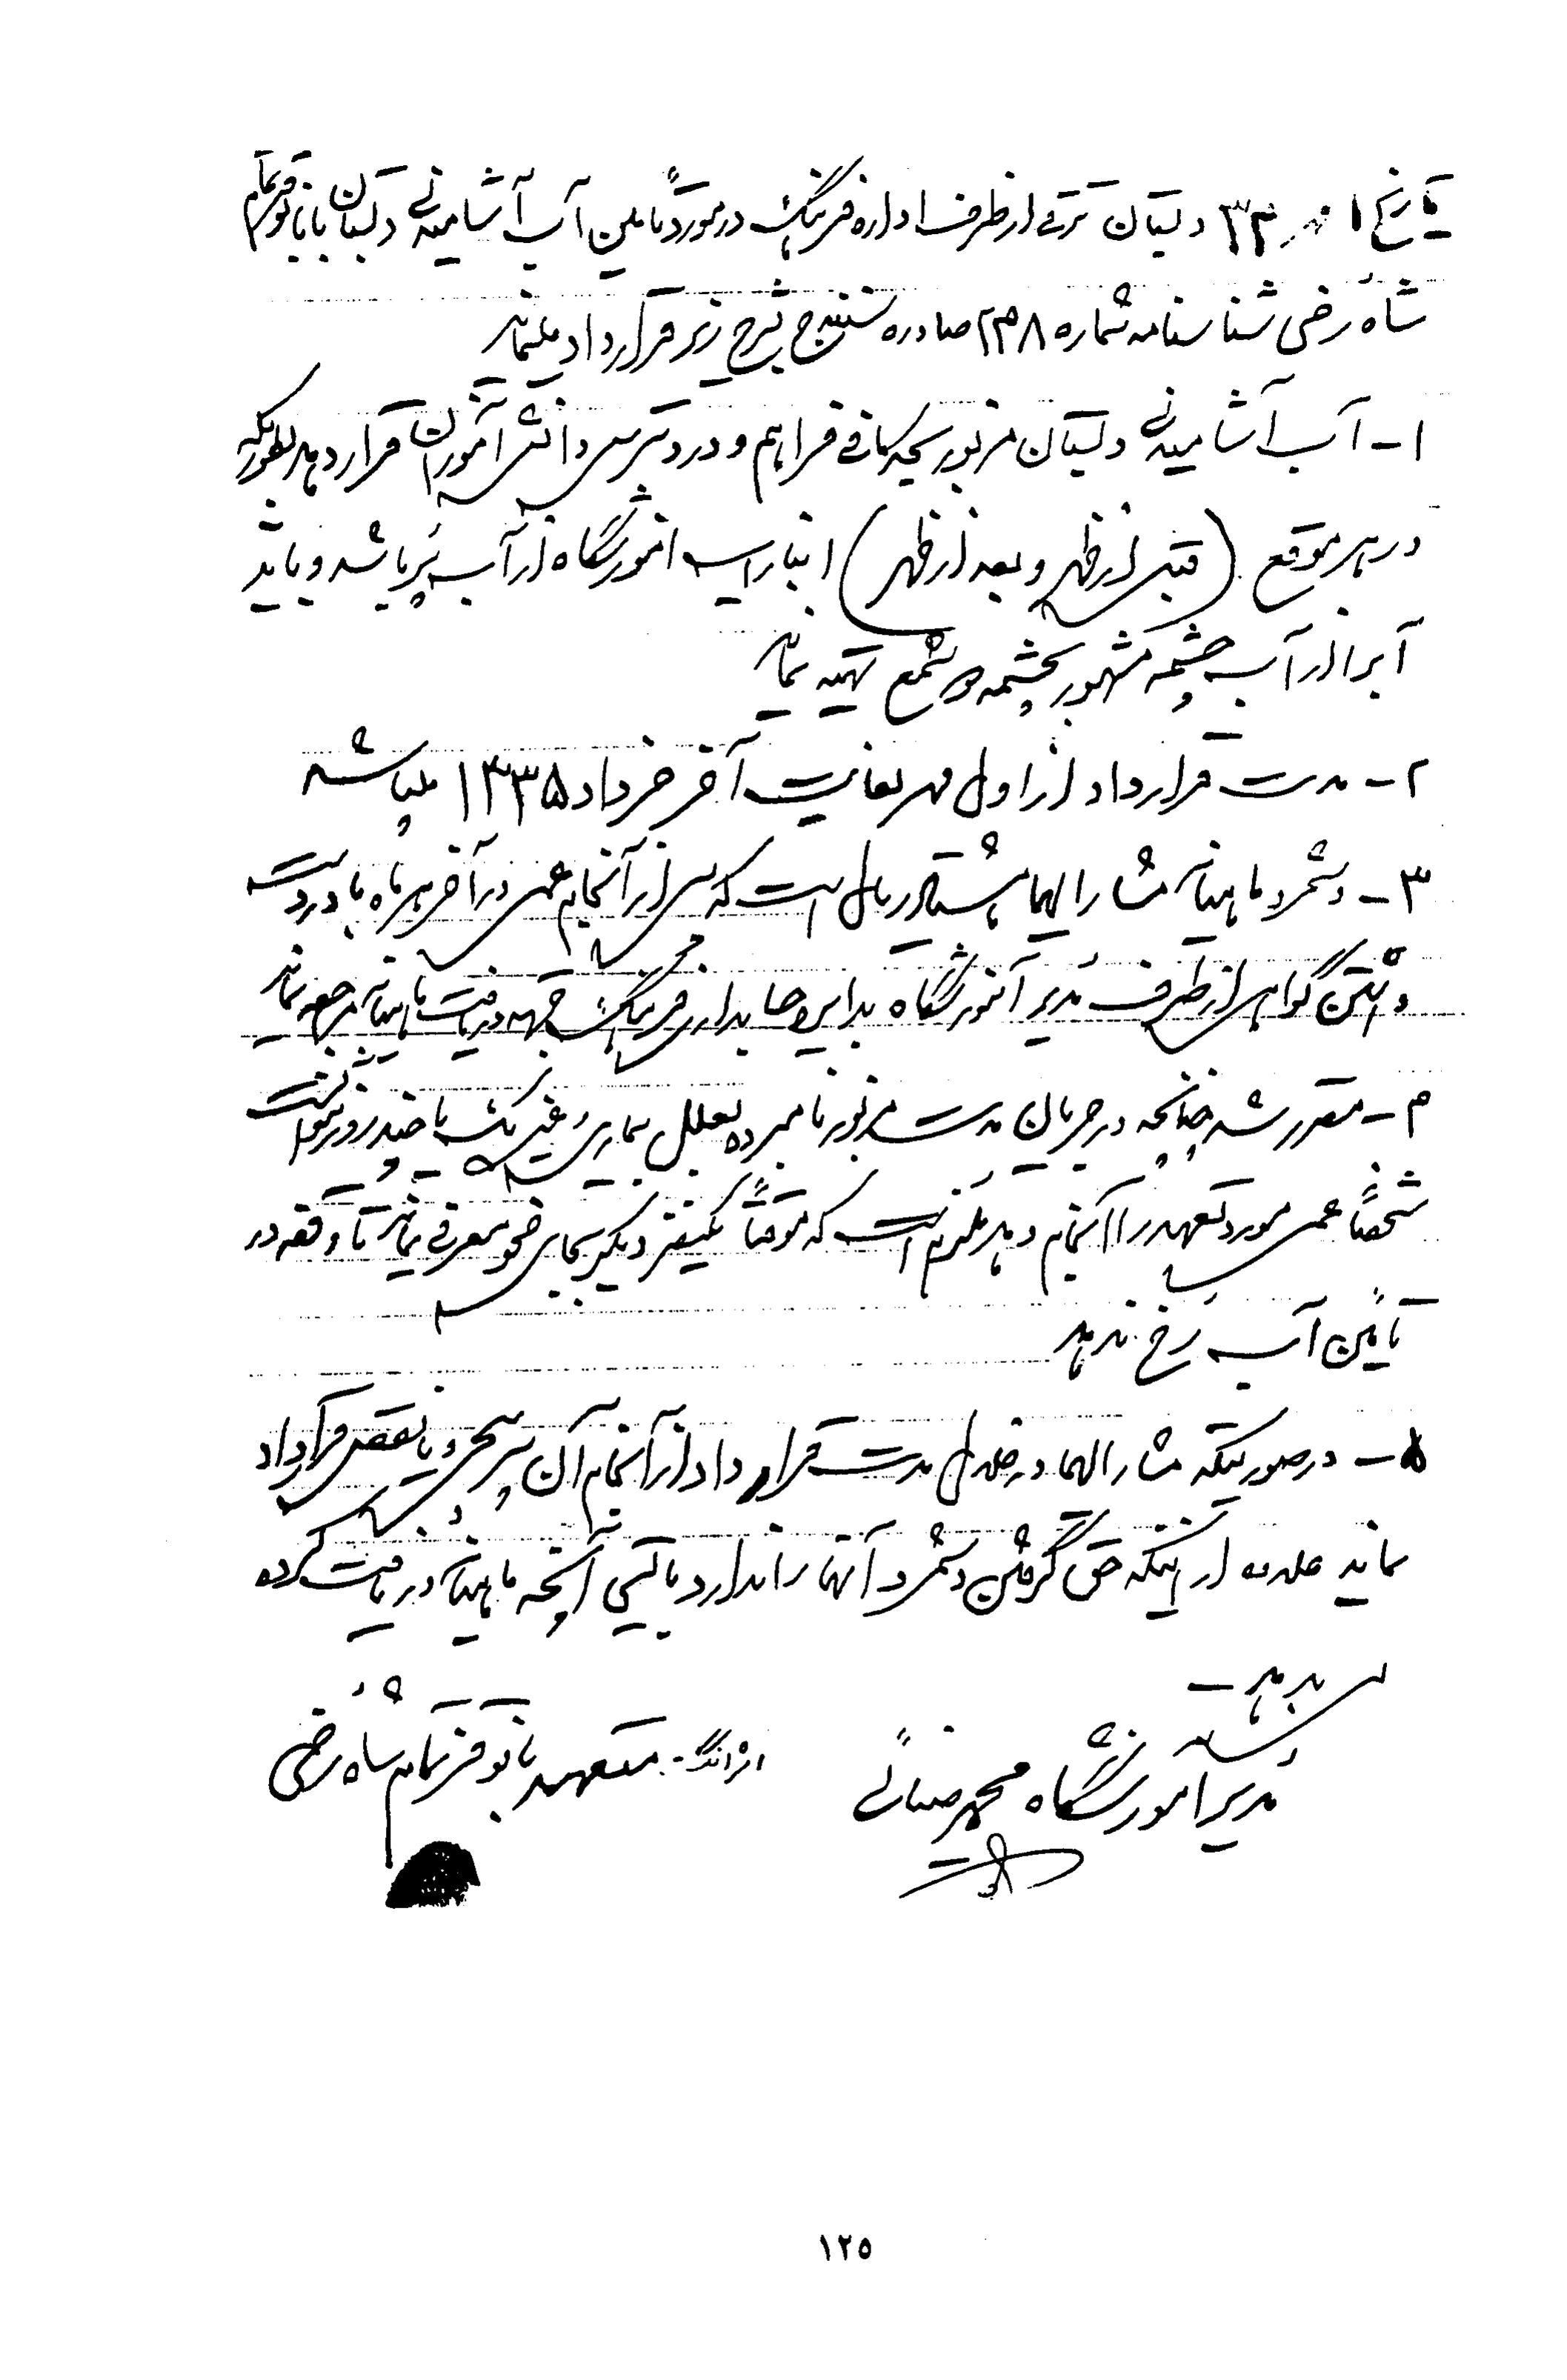 بتاریخ ۱ مهر ۳۴ دبستان ترقی از طرف اداره فرهنگ در مورد تأمین آب آشامیدنی دبستان با بانو فرتمام
شاه رضی شناسنامه شماره ۲۳۸ صادره سنندج بشرح زیر قرارداد مینماید
۱ - آب آشامیدنی دبستان مزبور بحد کافی فراهم و در دسترس دانش آموزان قرار دهد بطوریکه
در هر موقع (قبل از ظهر و بعد از ظهر) انبار آب آموزشگاه از آب پر باشد و باید
آبرا از آب چشمه مشهور بچشمه شمع تهیه نماید
۲ - مدت قرارداد از اول مهر لغایت آخر خرداد ۱۳۳۵ میباشد
۳ - دستمزد ماهیانه مشارالیها هشتاد ریال است که پس از انجام عمل در آخر هر ماه با در دست
داشتن گواهی از طرف مدیر آموزشگاه بدایره حسابداری فرهنگ جهت دریافت ماهیانه مراجعه نماید
۴ - مقرر شد چنانچه در جریان مدت مزبور نامبرده بعلل بیماری و غیره یک یا چند روز نتوانست
شخصاً عمل مورد تعهد را انجام دهد ملزم است که موقتاً یکنفر دیگر بجای خود معرفی نماید تا وقفه در
تأمین آب رخ ندهد
۵ - در صورتیکه مشارالیها در خلال مدت قرار داد از انجام آن سرپیچی و یا نقض قرارداد
نماید علاوه از اینکه حق گرفتن دستمزد آنماه را ندارد بایستی آنچه ماهیانه دریافت کرده
پس بدهد -
مدیر آموزشگاه محمد صنعانی
اثر انگشت متعهد بانو فرتمام شاه رضی
۱۲۵